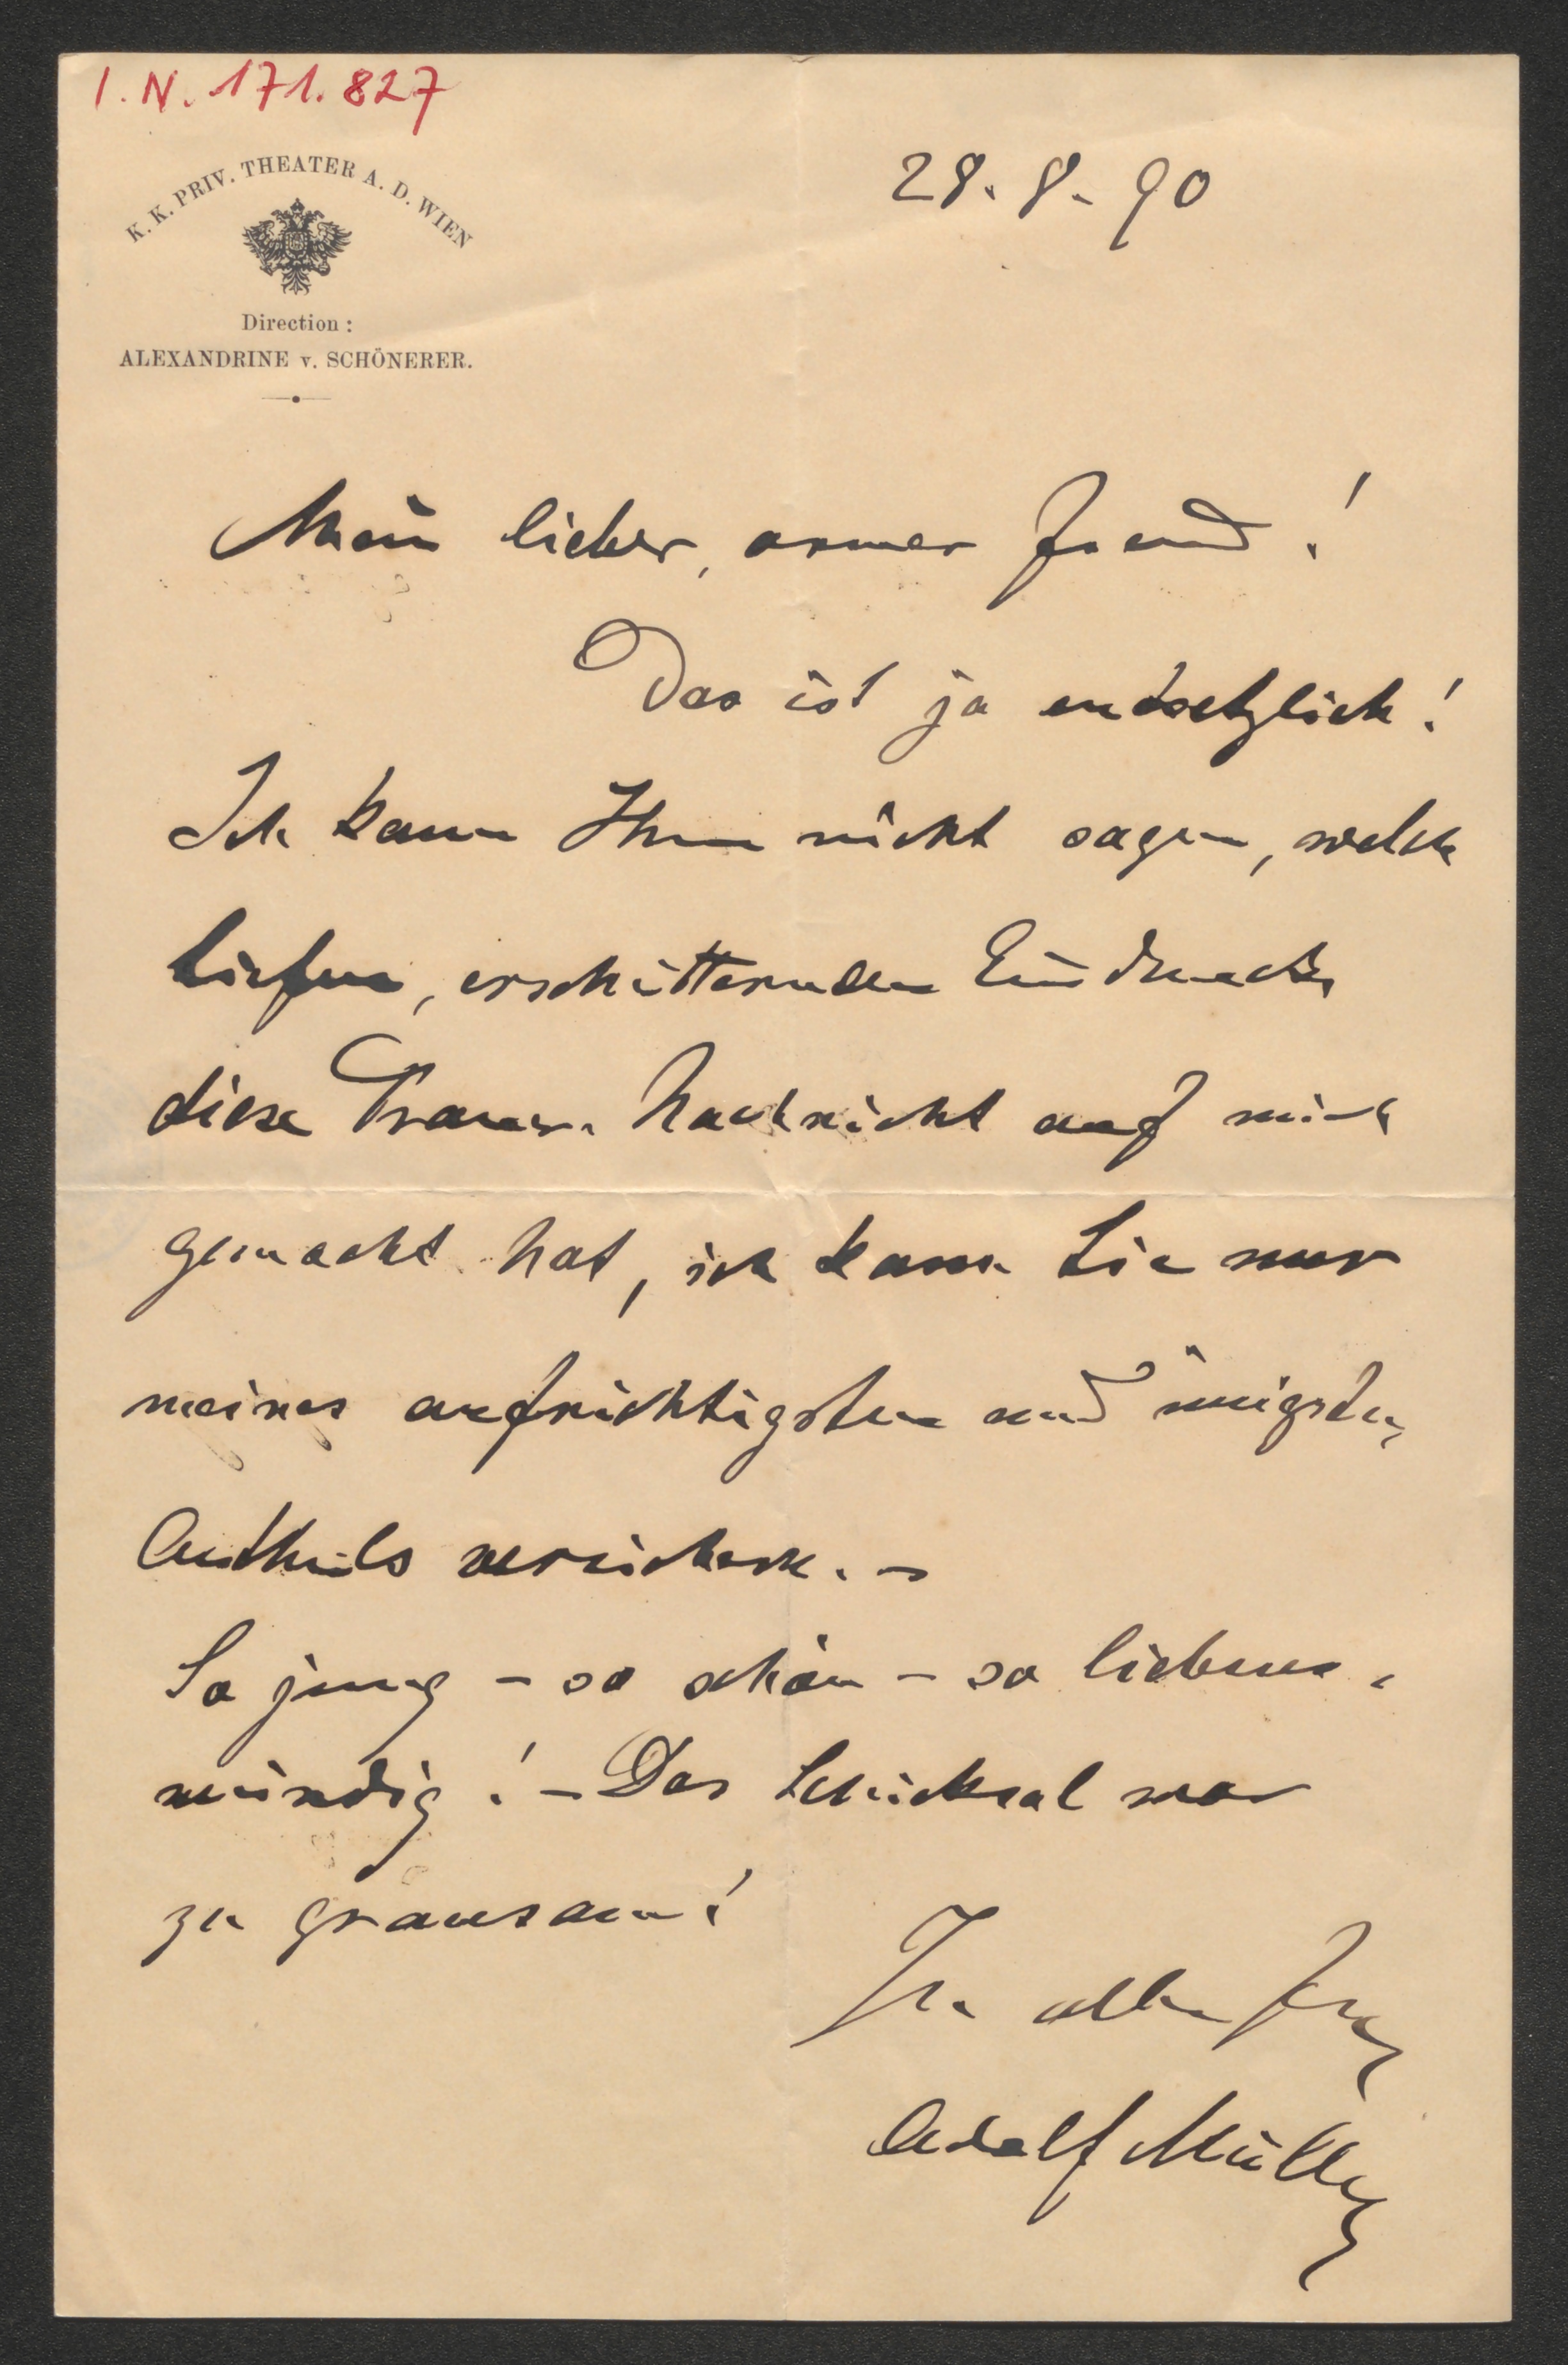 I. N. 171.827
K. K. PRIV. THEATER A. D. WIEN
Direction :
ALEXANDRINE v. SCHÖNERER.
28. 8. 90
Mein lieber, armer Freund!
Das ist ja entsetzlich!
Ich kann Ihnen nicht sagen, welch
tiefen, erschütternden Eindruck
diese Trauer-Nachricht auf mich
gemacht hat, ich kann Sie nur
meines aufrichtigsten und innigsten
Antheils versichern. –
So jung – so schön – so liebens-
würdig! – Das Schicksal war
zu grausam!
Ihr alter
Adolf Müller